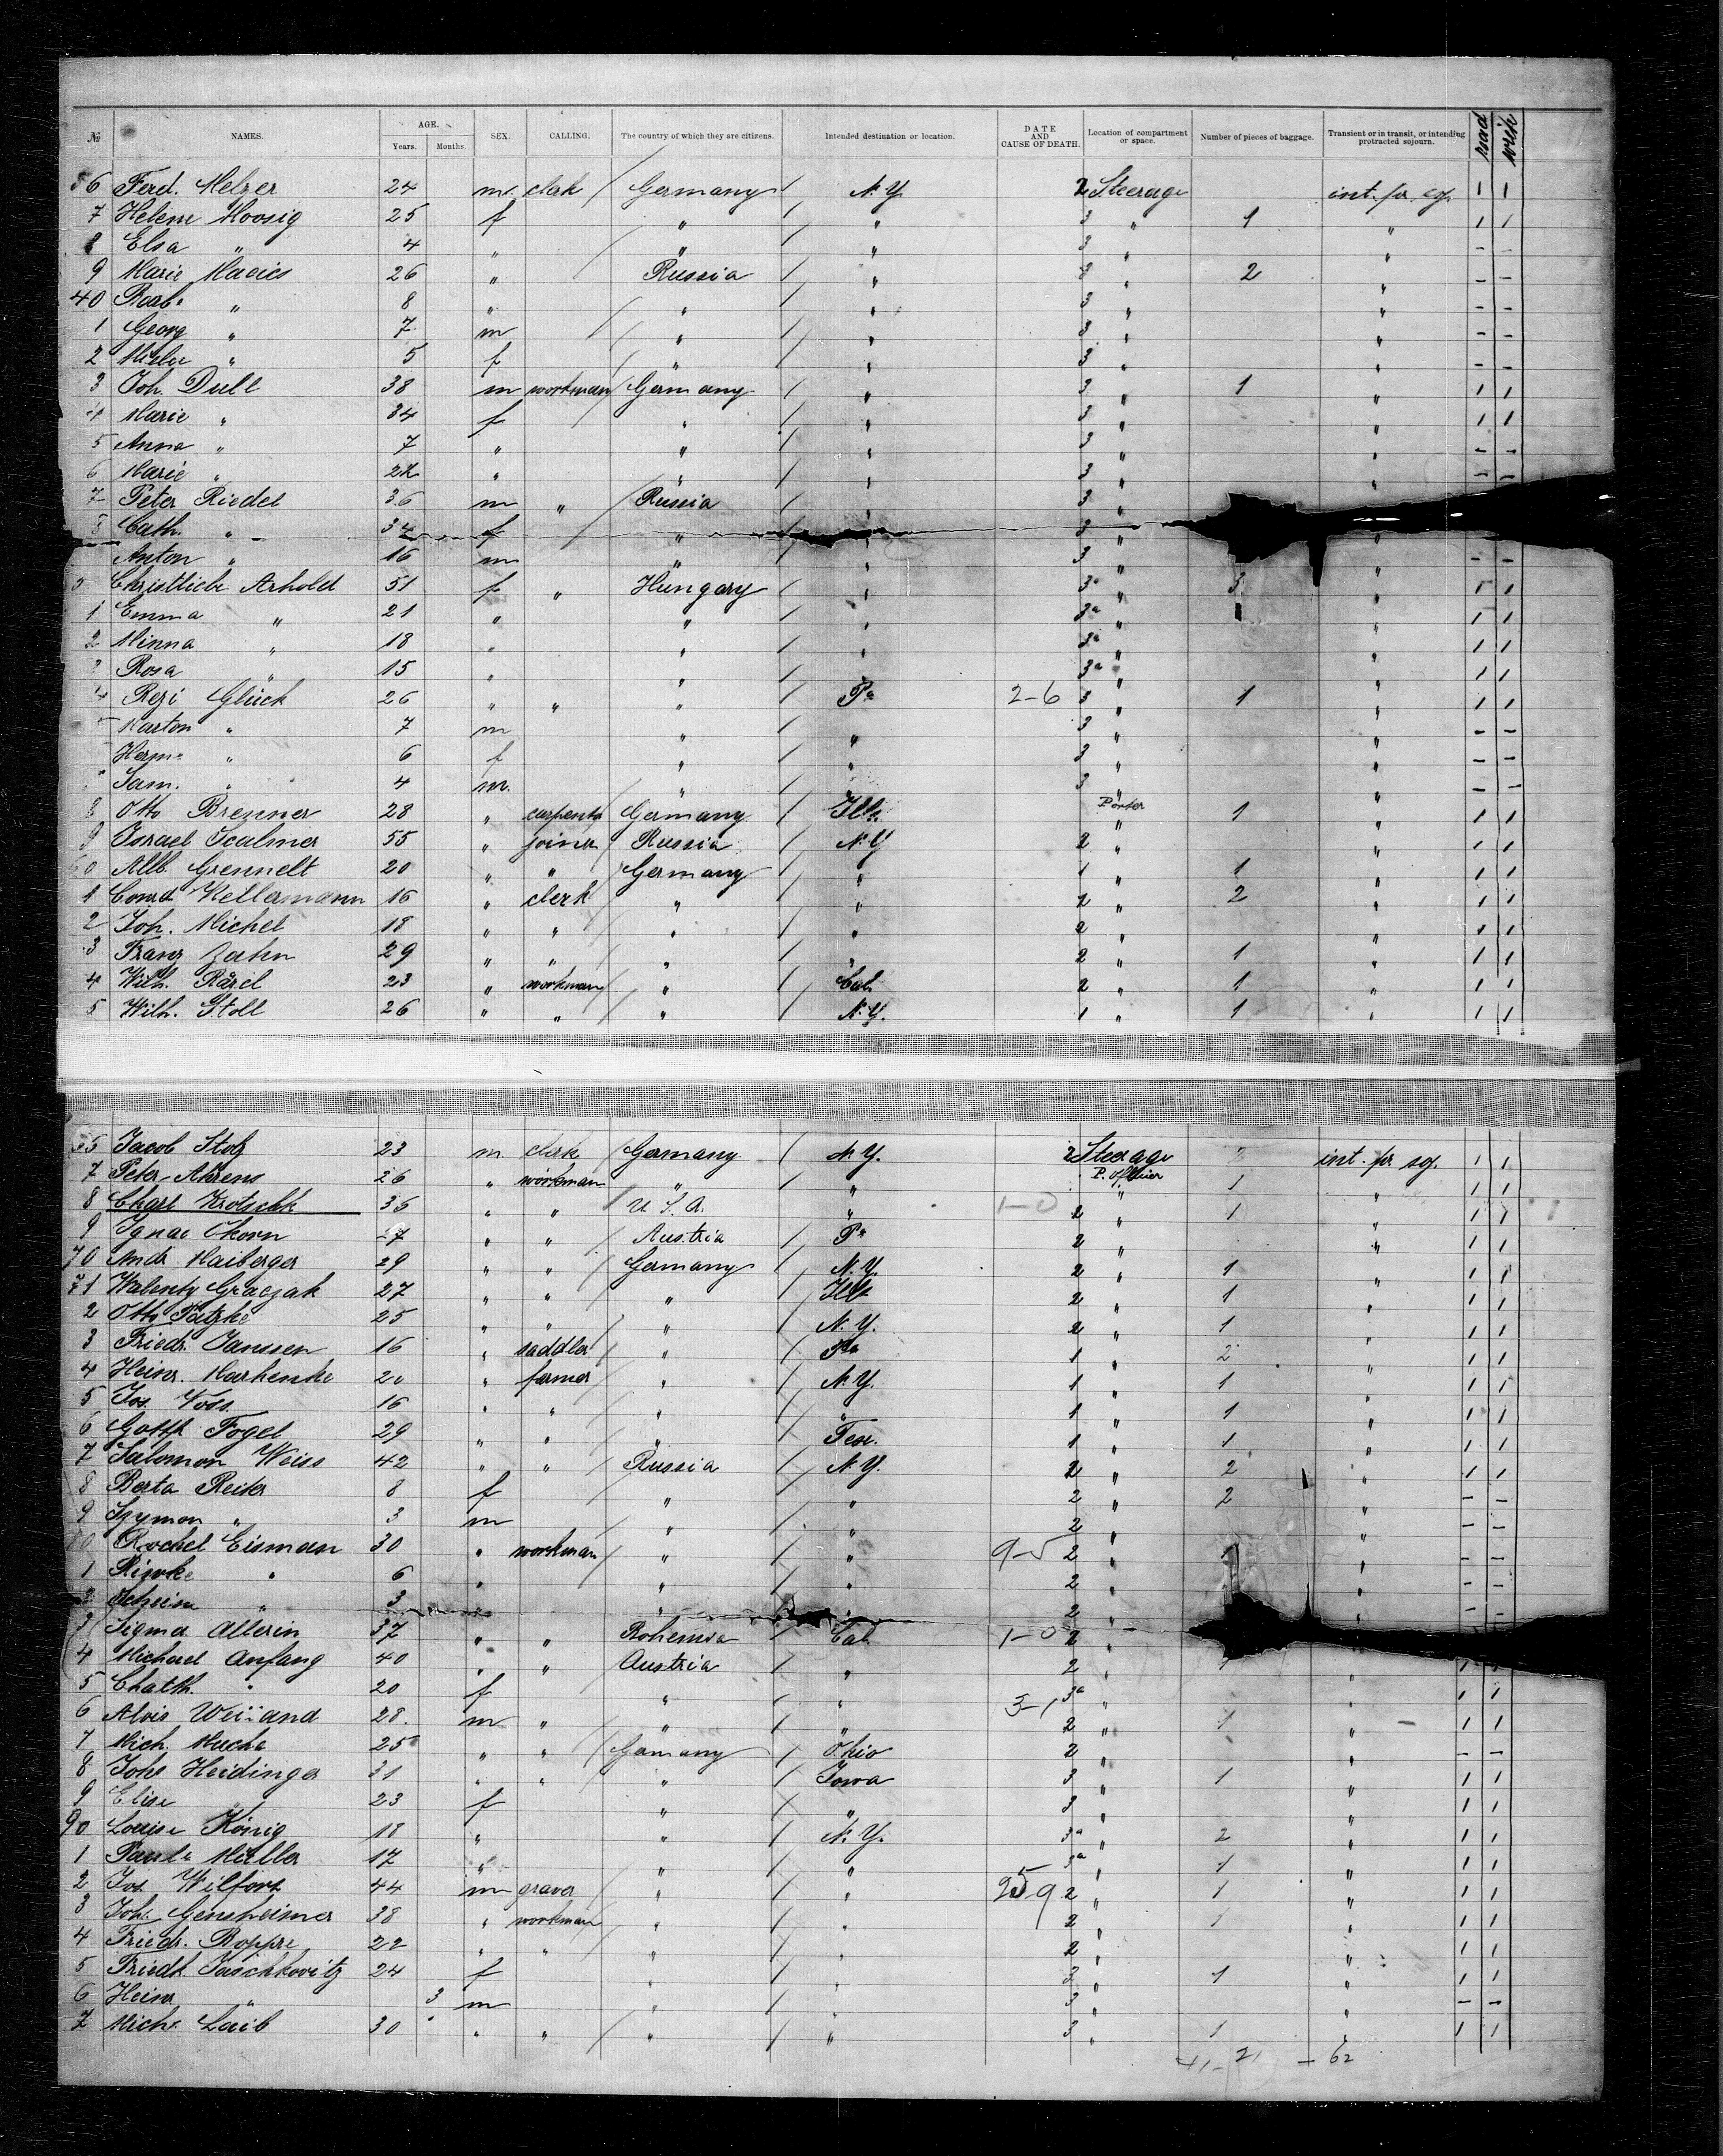 № NAMES. AGE. Years. Months. SEX. CALLING. The country of which they are citizens. Intended destination or location. DATE AND CAUSE OF DEATH. Location of compartment or space. Number of pieces of baggage. Transient or in transit, or intending protracted sojourn. read write
36 Ferd. Melzer 24 m. clerk / Germany / N.Y. 2 Steerage int. pr. sg. 1 1
7 Helene Moosig 25 f / " / " 3 " 1 " 1 1
8 Elsa " 4 " / " / " 3 " " - -
9 Marie 26 " Russia / " 3 " 2 " - -
40 Barb. " 8 " / " / " 3 " " - -
1 Georg " 7 m / " / " 3 " " - -
2 " 5 f / " / " 3 " " - -
3 Joh. Dull 38 m workman / Germany / " 3 " 1 " 1 1
4 Marie " 34 f " / " 3 " " 1 1
5 Anna " 7 " " / " 3 " " - -
6 Marie " " " / " 3 " " - -
7 Peter Riedel 36 m " / Russia / " 3 "
8 Cath. " 34 f / " / " 3 " "
Anton " 16 m " / " 3 " " - -
Christliebe Arhold 51 f " Hungary / " 3a " 3 " 1 1
1 Emma " 21 " " / " 3a " " 1 1
2 Minna " 18 " " / " 3a " " 1 1
Rosa " 15 " " / " 3a " " 1 1
4 Rezi Glück 26 " " " / Pa 2-6 3 " 1 " 1 1
Marton " 7 m " / " 3 " " - -
Herm. " 6 f " / " 3 " " - -
Sam. " 4 m. / " / " 3 " " - -
8 Otto Brenner 28 " carpenter Germany / Ills. Porter " 1 " 1 1
9 Israel Scalmer 55 " joiner / Russia / N.Y 2 " " 1 1
60 Alb. Grennelt 20 " " / Germany / " 1 " 1 " 1 1
1 Conrd Hellermann 16 " clerk / " / " 2 " 2 " 1 1
2 Joh. Michel 18 " " / " / " 2 " " 1 1
3 Franz Zahn 29 " " / " / " 2 " 1 " 1 1
4 Wilh. 23 " workman / " / Cal. 2 " 1 " 1 1
5 Wilh. Stoll 26 " " / " / N.Y. 1 " 1 " 1 1
Jacob Stolz 23 m. clerk / Germany / N.Y. 2 Steerage int. pr sg. 1 1
7 Peter Ahrens 26 " workman " / " P. officier " 1 " 1 1
8 Charl Krotschk 36 " " / U.S.A. " 1-0 2 " 1 " 1 1
9 Ignac " " / Austria / Pa 2 " " 1 1
70 Andr. Haiberger 29 " " / Germany / N.Y. 2 " 1 " 1 1
71 Walenty Graczak 27 " " / " / Ills 2 " 1 " 1 1
2 Otto Tietzke 25 " " / " / N.Y. 2 " 1 " 1 1
3 Friedr. Janssen 16 " saddler / " / Pa 1 " 2 " 1 1
4 Heinr. Harhenke 20 " farmer / " / N.Y. 1 " 1 " 1 1
5 Jos. Voss 16 " " / " / " 1 " 1 " 1 1
6 Gottf. Fogel 29 " " / " / Tex. 1 " 1 " 1 1
7 Salomon Weiss 42 " " / Russia / N.Y. 2 " 2 " 1 1
8 Berta Reiter 8 f / " / " 2 " 2 " - -
9 Szymon " 3 m / " / " 2 " " - -
80 Rochel Eisman 30 " workman / " / " 9-5 2 " " - -
1 Riwke " 6 " / " / " 2 " " - -
2 Scheine " 3 " / " / " 2 " " - -
3 Sigma Allerin 37 " " / Bohemia / Cal. 1-0 2 "
4 Michael Anfang 40 " " / Austria / " 2 " " 1 1
5 Chath. " 20 f " / " 3a " " 1 1
6 Alois Weiland 28. m " / " / " 3-1 2 " 1 " 1 1
7 Mich. Mucha 25 " " / Germany / Ohio 2 " " - -
8 Johs Heidinger 31 " " / " / Iowa 3 " 1 " 1 1
9 Elise " 23 f " / " 3 " " 1 1
90 Louise König 18 " " / N.Y. 3a " 2 " 1 1
1 Paula Müller 17 " / " / " 3a " 1 " 1 1
2 Jos. Wilfort 44 m graver / " / " 2 " 1 " 1 1
3 Joh. Gensheimer 38 " workman / " / " 2 " 1 " 1 1
4 Friedr. Roppre 22 " " / " / " 2 " " 1 1
5 Friedk. Jaschkovitz 24 f / " / " 3 " 1 " 1 1
6 Heinr. " 3 m / " / " 3 " " - -
7 Mich. Laib 30 " " / " / " 3 " 1 " 1 1
- 62